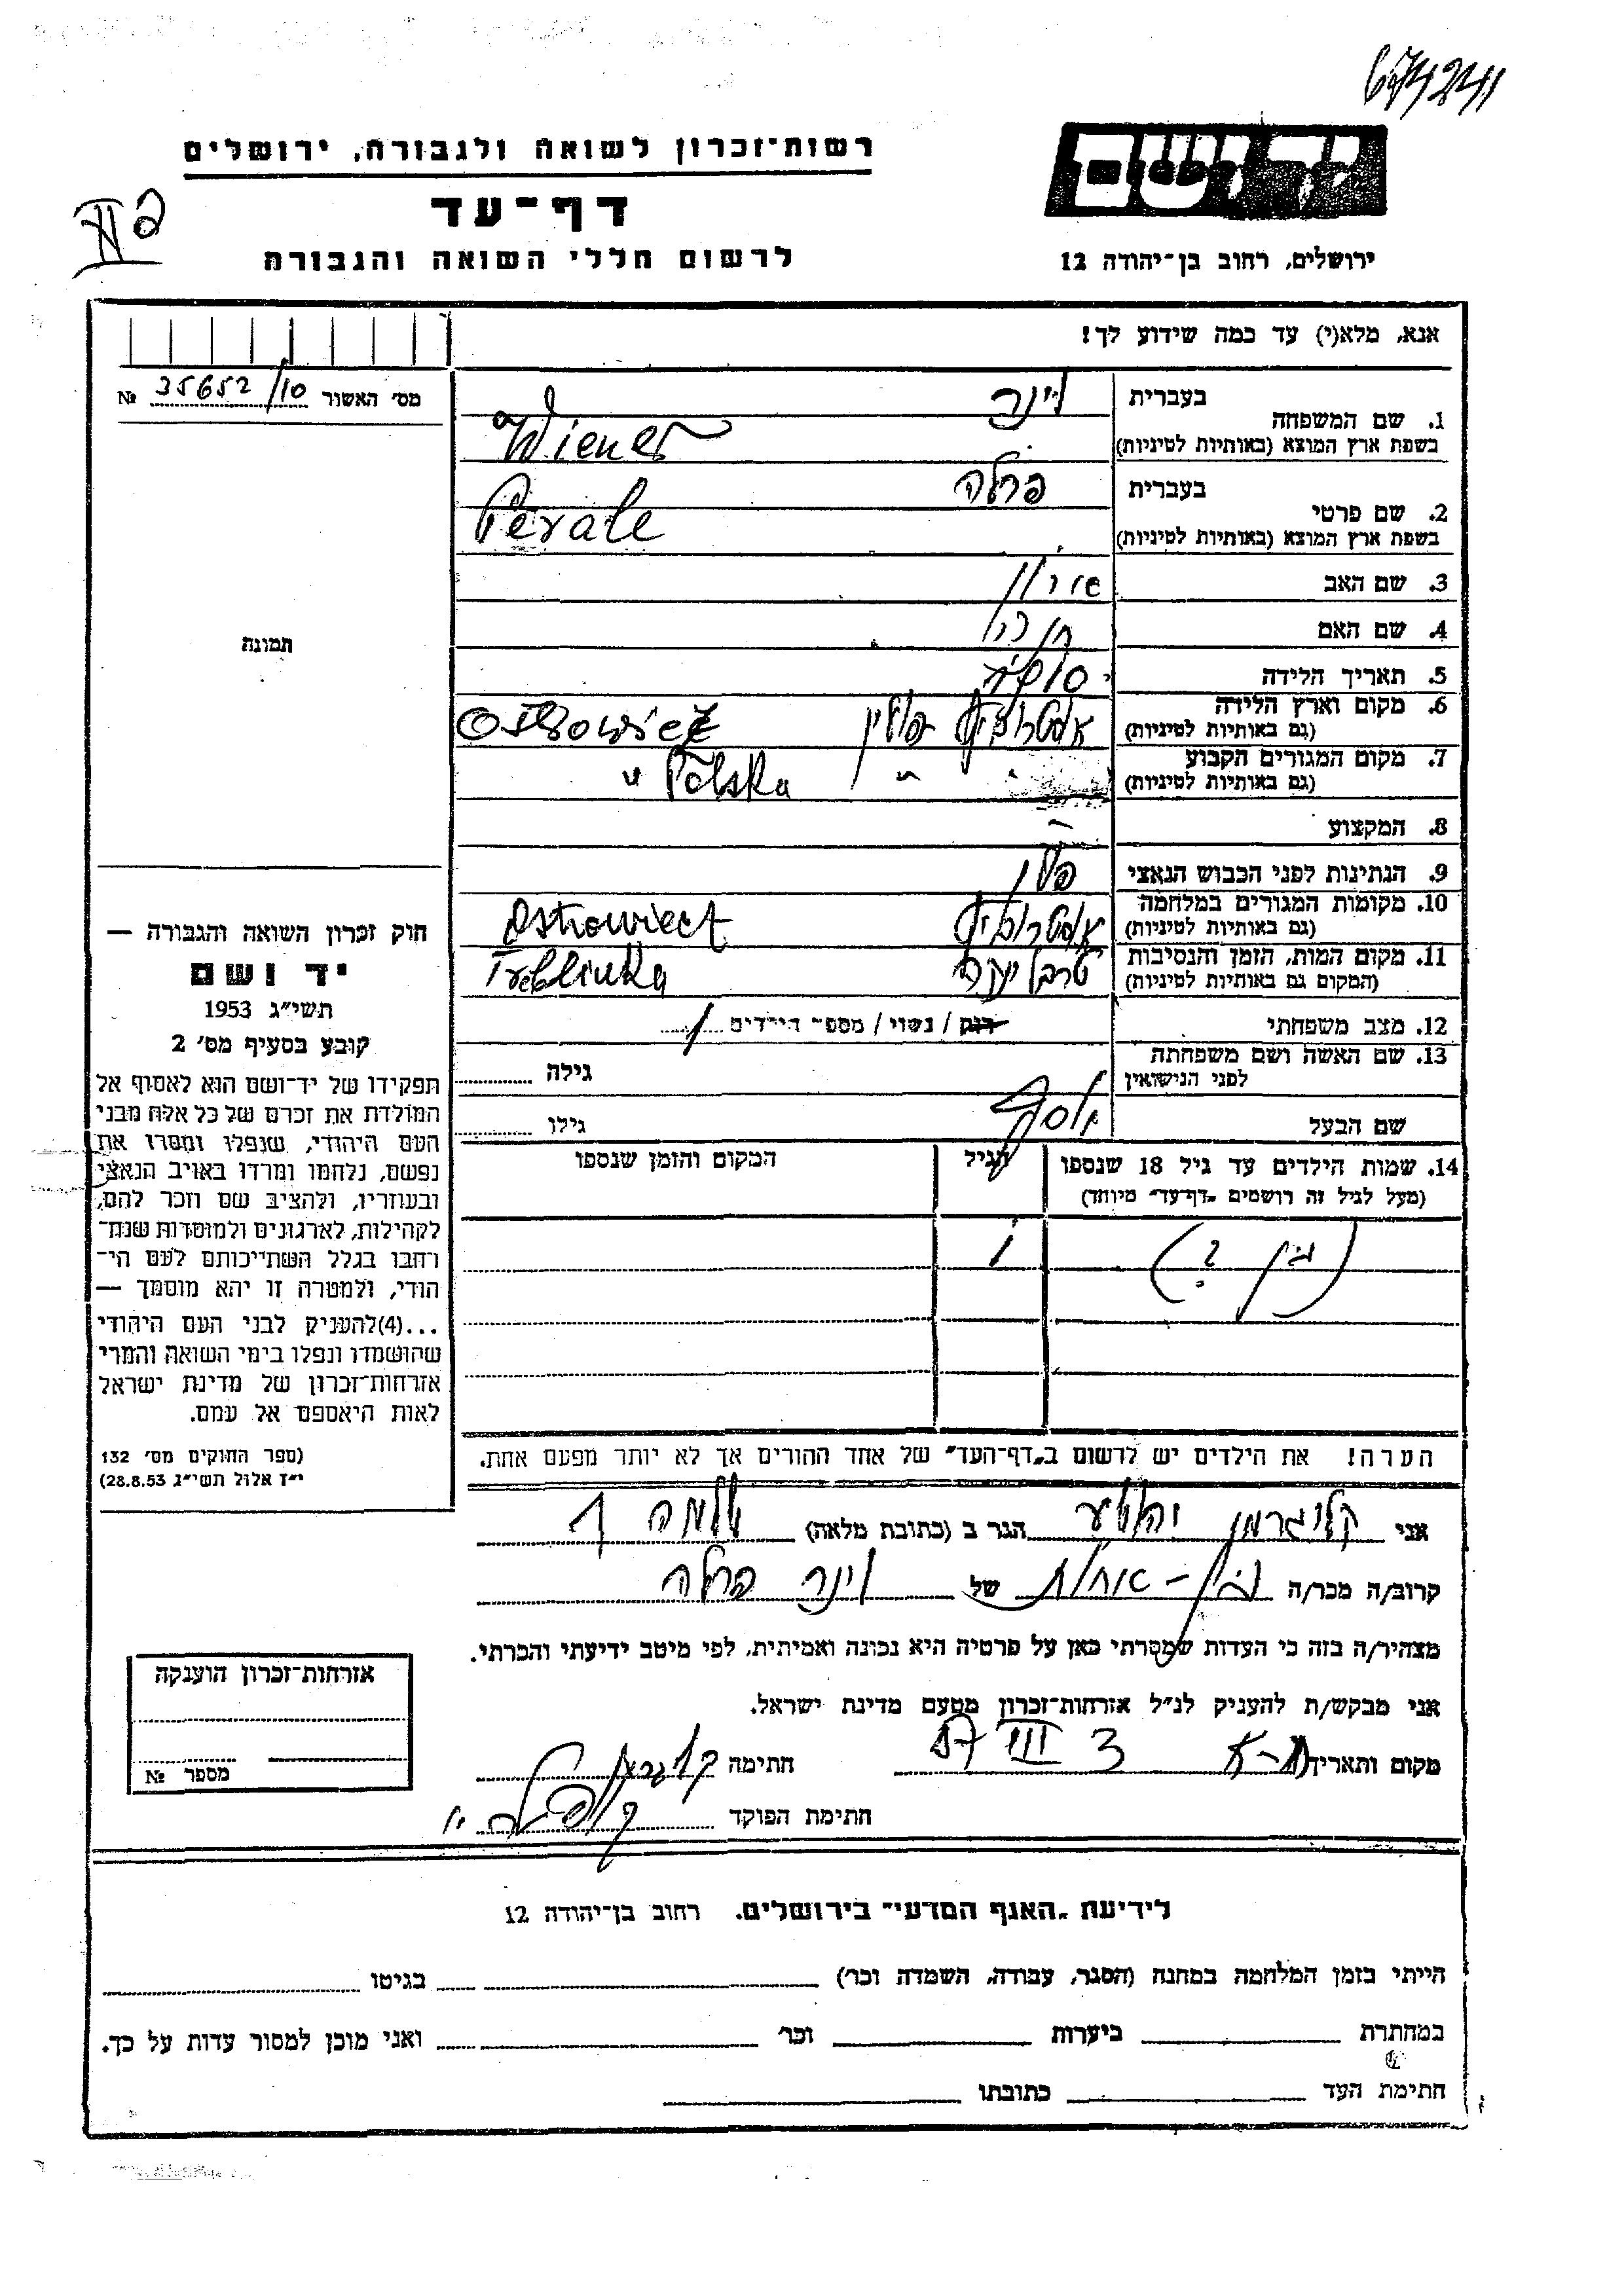 674241
רשות־זכרון לשואה ולגבורה, ירושלים
יד ושם
דף־עד
לרשום חללי השואה והגבורה
ירושלים, רחוב בן־יהודה 12
אנא, מלא(י) עד כמה שידוע לך!
מס׳ האשור 35652/10 №
תמונה
1. שם המשפחה
בעברית וינר
בשפת ארץ המוצא (באותיות לטיניות) Wiener
2. שם פרטי
בעברית פרלה
בשפת ארץ המוצא (באותיות לטיניות) Perale
3. שם האב
4. שם האם
5. תאריך הלידה
6. מקום וארץ הלידה
(גם באותיות לטיניות) פולין
7. מקום המגורים הקבוע
(גם באותיות לטיניות) " Polska
8. המקצוע —
9. הנתינות לפני הכבוש הנאצי
10. מקומות המגורים במלחמה
(גם באותיות לטיניות)
11. מקום המות, הזמן והנסיבות
(המקום גם באותיות לטיניות) טרבלינקה Treblinka
12. מצב משפחתי רוק / נשוי / מספר הילדים 1
13. שם האשה ושם משפחתה
לפני הנישואין גילה
שם הבעל יוסף גילו
14. שמות הילדים עד גיל 18 שנספו
(מעל לגיל זה רושמים „דף־עד״ מיוחד)
הגיל
המקום והזמן שנספו
1
הערה! את הילדים יש לרשום ב„דף־העד״ של אחד ההורים אך לא יותר מפעם אחת.
חוק זכרון השואה והגבורה —
יד ושם
תשי״ג 1953
קובע בסעיף מס׳ 2
תפקידו של יד־ושם הוא לאסוף אל
המולדת את זכרם של כל אלה מבני
העם היהודי, שנפלו ומסרו את
נפשם, נלחמו ומרדו באויב הנאצי
ובעוזריו, ולהציב שם וזכר להם,
לקהילות, לארגונים ולמוסדות שנח־
רחבו בגלל השתייכותם לעם הי־
הודי, ולמטרה זו יהא מוסמך —
...(4)להעניק לבני העם היהודי
שהושמדו ונפלו בימי השואה והמרי
אזרחות־זכרון של מדינת ישראל
לאות היאספם אל עמם.
(ספר החוקים מס׳ 132
י״ז אלול תשי״ג 28.8.53)
אני קלוגרמן הגר ב (כתובת מלאה)
קרוב/ה מכר/ה של וינר פרלה
מצהיר/ה בזה כי העדות שמסרתי כאן על פרטיה היא נכונה ואמיתית, לפי מיטב ידיעתי והכרתי.
אני מבקש/ת להעניק לנ״ל אזרחות־זכרון מטעם מדינת ישראל.
מקום ותאריך ת-א 3 VIII 57 חתימה
חתימת הפוקד
אזרחות־זכרון הוענקה
מספר №
לידיעת „האגף המדעי״ בירושלים. רחוב בן־יהודה 12
הייתי בזמן המלחמה במחנה (הסגר, עבודה, השמדה וכו׳) בגיטו
במחתרת ביערות וכו׳ ואני מוכן למסור עדות על כך.
חתימת העד כתובתו